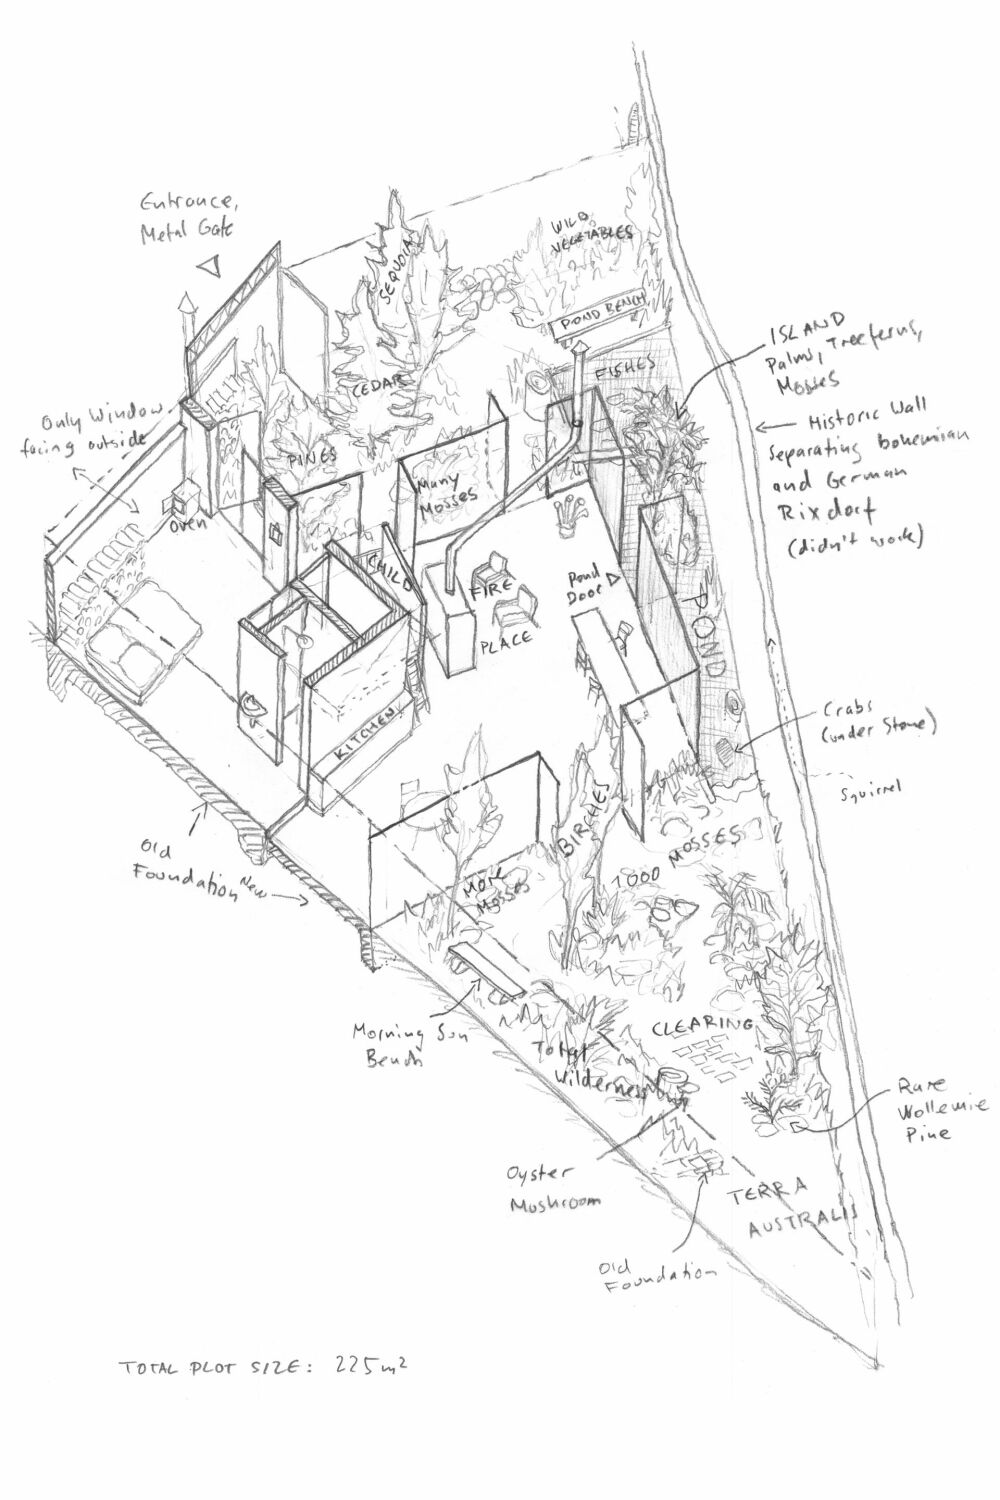 Entrance,
Metal Gate
WILD
VEGETABLES
SEQUOIA
POND BENCH
ISLAND
Palms, Treeferns,
Mosses
FISHES
CEDAR
Only Window
facing outside
Historic Wall
separating bohemian
and German
Rixdorf
(didn't work)
PINES
Many
Mosses
oven
CHILD
FIRE
PLACE
Pond
Door
POND
KITCHEN
Crabs
(under Stone)
Squirrel
BIRCHES
1000 MOSSES
Old
Foundation
New
More
Mosses
Morning Sun
Bench
CLEARING
Total
Wilderness
Rare
Wollemie
Pine
Oyster
Mushroom
TERRA
AUSTRALIS
Old
Foundation
TOTAL PLOT SIZE: 225m²